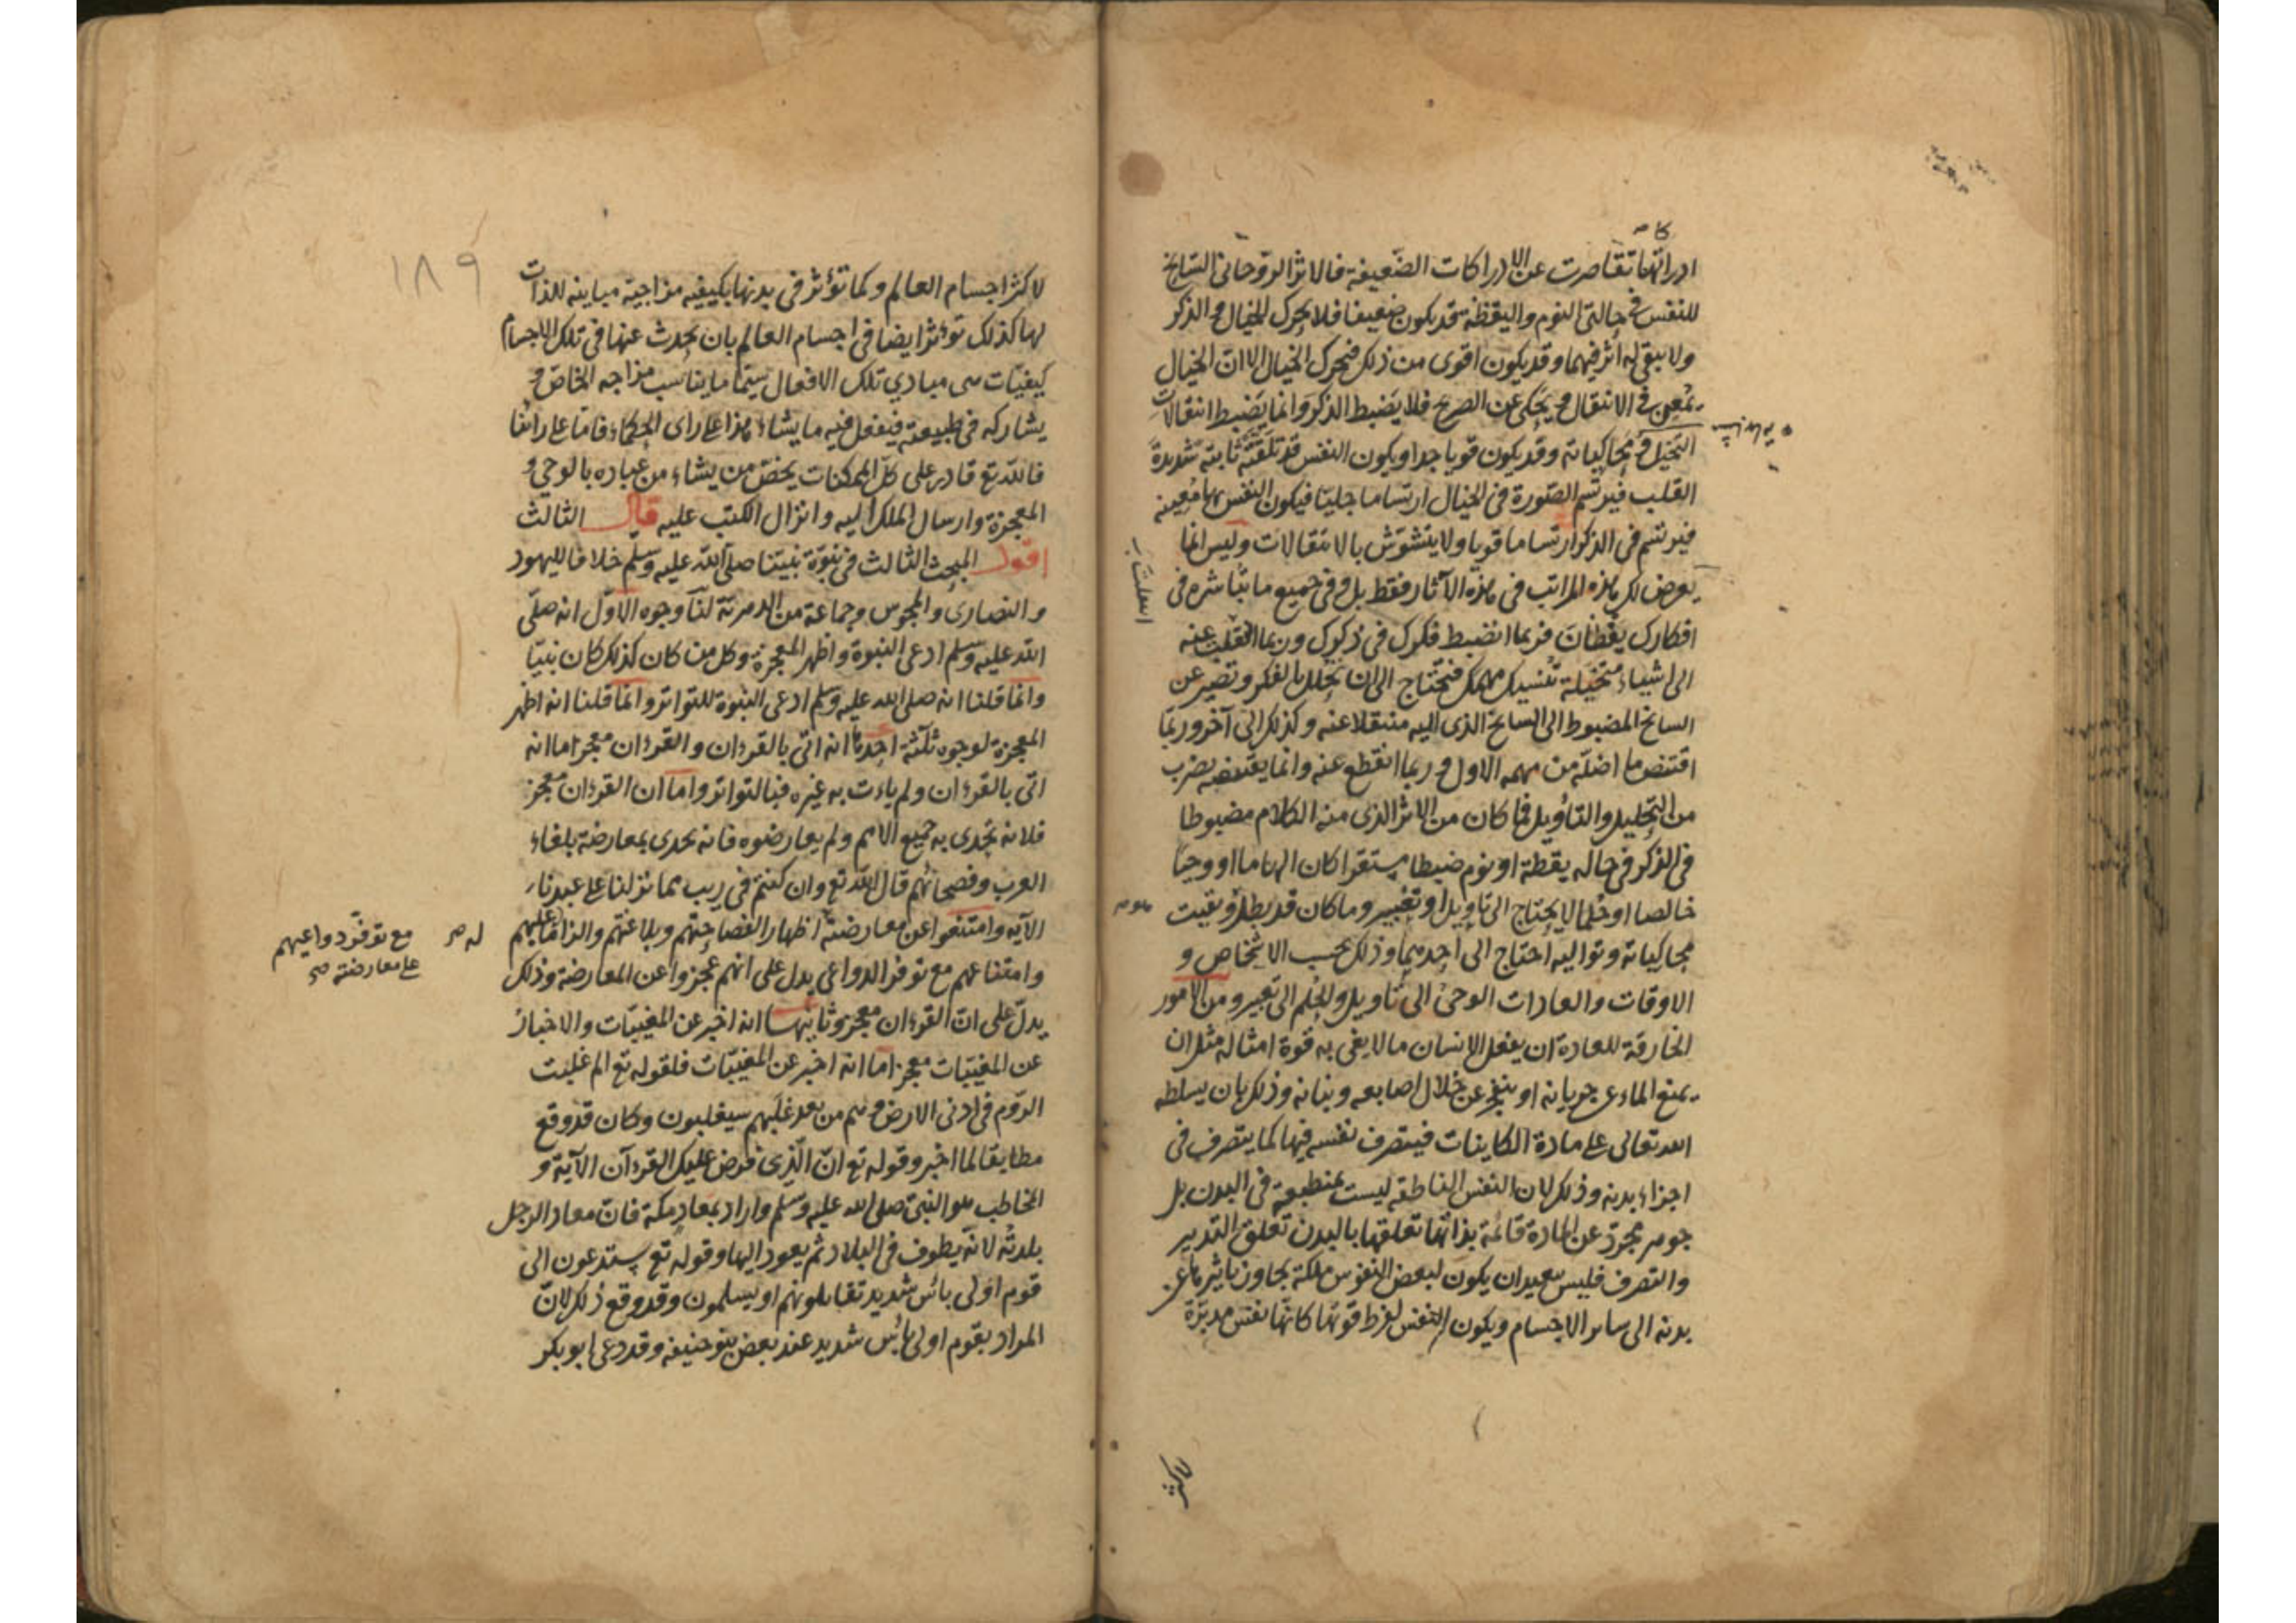 ادراكاتها تقاصرت عن الادراكات الضعيفة فالاثر الروحانى السانح
للنفس فى حالتى النوم واليقظة قد يكون ضعيفا فلا يحرك الخيال والذكر
ولا يبقى له اثر فيهما وقد يكون اقوى من ذلك فيحرك الخيال الا ان الخيال
يمعن فى الانتقال ويحكى عن الصريح فلا يضبط الذكر وانما يضبط انتقالات
التخيل ومحاكياته وقد يكون قويا جدا ويكون النفس قد تلقته ثابتة شديدة
القلب فيرتسم الصورة فى الخيال ارتساما جليا فيكون النفس بها معينة
فيرتسم فى الذكر ارتساما قويا ولا يتشوش بالانتقالات وليس انما
يعرض لك هذه المراتب فى هذه الآثار فقط بل وفى جميع ما تباشره فى
افكارك يقظان فربما انضبط فكرك فى ذكرك وربما انتقلت عنه
الى اشياء متخيلة تنسيك مهمك فتحتاج الى ان تحلل بالفكر وتصير عن
السانح المضبوط الى السانح الذى اليه منتقلا عنه وكذلك الى آخر وربما
اقتنص ما اضله من مهمه الاول وربما انقطع عنه وانما يقتنصه بضرب
من التحليل والتأويل فما كان من الاثر الذى منه الكلام مضبوطا
فى الذكر فى حاله يقظة او نوم ضبطا مستقرا كان الهاما او وحيا
خالصا او حلما لا يحتاج الى تأويل او تعبير وما كان قد بطل وبقيت
محاكياته وتواليه احتاج الى احدهما وذلك بحسب الاشخاص و
الاوقات والعادات الوحى الى تاويل والحلم الى تعبير ومن الامور
الخارقة للعادة ان يفعل الانسان ما لا يفى به قوة امثاله مثل ان
يمنع الماء عن جريانه او ينفجر عن خلال اصابعه وبنانه وذلك بان يسلطه
الله تعالى على مادة الكاينات فيتصرف نفسه فيها كما يتصرف فى
اجزاء بدنه وذلك لان النفس الناطقه ليست بمنطبعة فى البدن بل
جوهر مجرد عن المادة قائمة بذاتها تعلقها بالبدن تعلق التدبير
والتصرف فليس ببعيد ان يكون لبعض النفوس ملكة يجاوز تأثيرها عن
بدنه الى ساير الاجسام ويكون النفس لفرط قوتها كانها نفس مدبرة
لاكثر
١٨٩
لاكثر اجسام العالم وكما تؤثر فى بدنها بكيفيه مزاجية مباينه للذات
لها كذلك تؤثر ايضا فى اجسام العالم بان يحدث عنها فى تلك الاجسام
كيفيات هى مبادي تلك الافعال سيما ما يناسب مزاجه الخاص و
يشاركه فى طبيعته فيفعل فيه ما يشاء هذا على راى الحكماء فاما على راينا
فالله تع قادر على كل الممكنات يخص من يشاء من عباده بالوحى و
المعجزة وارسال الملك اليه وانزال الكتب عليه قال الثالث
اقول المبحث الثالث فى نبوة نبينا صلى الله عليه وسلم خلافا لليهود
والنصارى والمجوس وجماعة من الدهرية لنا وجوه الاول انه صلى
الله عليه وسلم ادعى النبوة واظهر المعجزة وكل من كان كذلك كان نبيا
وانما قلنا انه صلى الله عليه وسلم ادعى النبوة للتواتر وانما قلنا انه اظهر
المعجزة لوجوه ثلثة احدها انه اتى بالقرءان والقرءان معجز اما انه
اتى بالقرءان ولم يأت به غيره فبالتواتر واما ان القرءان معجز
فلانه تحدى به جميع الامم ولم يعارضوه فانه تحدى بمعارضته بلغاء
العرب وفصحائهم قال الله تع وان كنتم فى ريب مما نزلنا على عبدنا
الآيه وامتنعوا عن معارضته اظهارا لفصاحتهم وبلاغتهم والزاما عليهم
له صح
مع توفر دواعيهم
على معارضته صح
وامتناعهم مع توفر الدواعى يدل على انهم عجزوا عن المعارضة وذلك
يدل على ان القرءان معجز وثانيها انه اخبر عن المغيبات والاخبار
عن المغيبات معجز اما انه اخبر عن المغيبات فلقوله تع الم غلبت
الروم فى ادنى الارض وهم من بعد غلبهم سيغلبون وكان قد وقع
مطابقا لما اخبر وقوله تع ان الذى فرض عليك القرءان الآية و
المخاطب هو النبى صلى الله عليه وسلم واراد بمعاد مكة فان معاد الرجل
بلدته لانه يطوف فى البلاد ثم يعود اليها وقوله تع ستدعون الى
قوم اولى بأس شديد تقاتلونهم او يسلمون وقد وقع ذلك لان
المراد بقوم اولى بأس شديد عند بعض بنو حنيفه وقد دعى ابو بكر